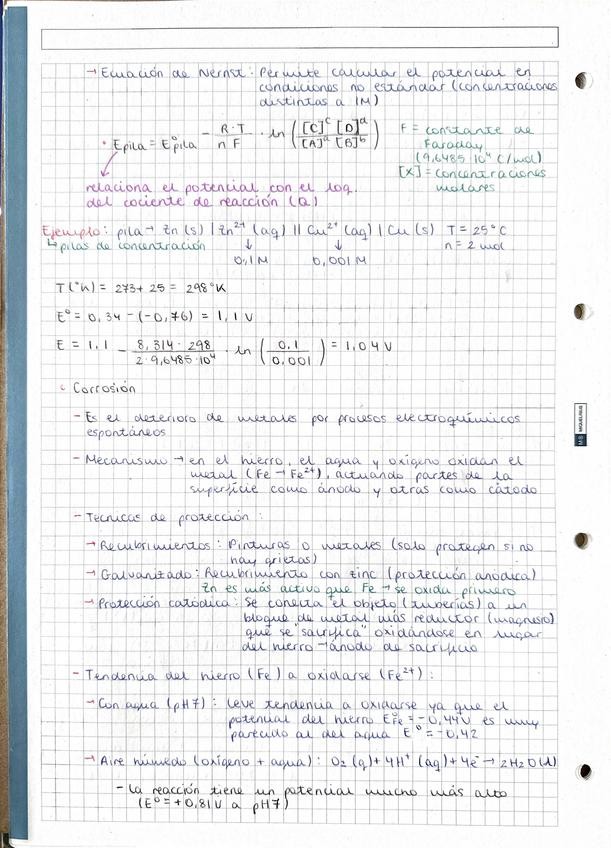 → Ecuación de Nernst: Permite calcular el potencial en
condiciones no estándar (concentraciones
distintas a 1M)
• Epila = E°pila - R·T / n F · ln ([C]^c [D]^d / [A]^a [B]^b)
F = constante de
Faraday
(9,6485·10⁴ C/mol)
[x] = concentraciones
molares
relaciona el potencial con el log.
del cociente de reacción (Q)
Ejemplo: pila → Zn (s) | Zn²⁺ (aq) || Cu²⁺ (aq) | Cu (s) T = 25°C
↳ pilas de concentración ↓ ↓ n = 2 mol
0,1M 0,001M
T(°K) = 273+ 25 = 298°K
E° = 0,34 - (-0,76) = 1,1 V
E = 1,1 - 8,314·298 / 2·9,6485·10⁴ · ln (0,1 / 0,001) = 1,04 V
Corrosión
- Es el deterioro de metales por procesos electroquímicos
espontáneos
- Mecanismo → en el hierro, el agua y oxígeno oxidan el
metal (Fe → Fe²⁺), actuando partes de la
superficie como ánodo y otras como cátodo
- Técnicas de protección:
→ Recubrimientos: Pinturas o metales (solo protegen si no
hay grietas)
→ Galvanizado: Recubrimiento con zinc (protección anódica)
Zn es más activo que Fe → se oxida primero
→ Protección catódica: Se conecta el objeto (tuberías) a un
bloque de metal más reductor (magnesio)
que se "sacrifica" oxidándose en lugar
del hierro → ánodo de sacrificio
- Tendencia del hierro (Fe) a oxidarse (Fe²⁺):
→ Con agua (pH7): Leve tendencia a oxidarse ya que el
potencial del hierro E°Fe = -0,44V es muy
parecido al del agua E° = -0,42
→ Aire húmedo (oxígeno + agua): O₂ (g) + 4H⁺ (aq) + 4e⁻ → 2H₂O (l)
- La reacción tiene un potencial mucho más alto
(E° = +0,81V a pH7)
MIQUELRIUS